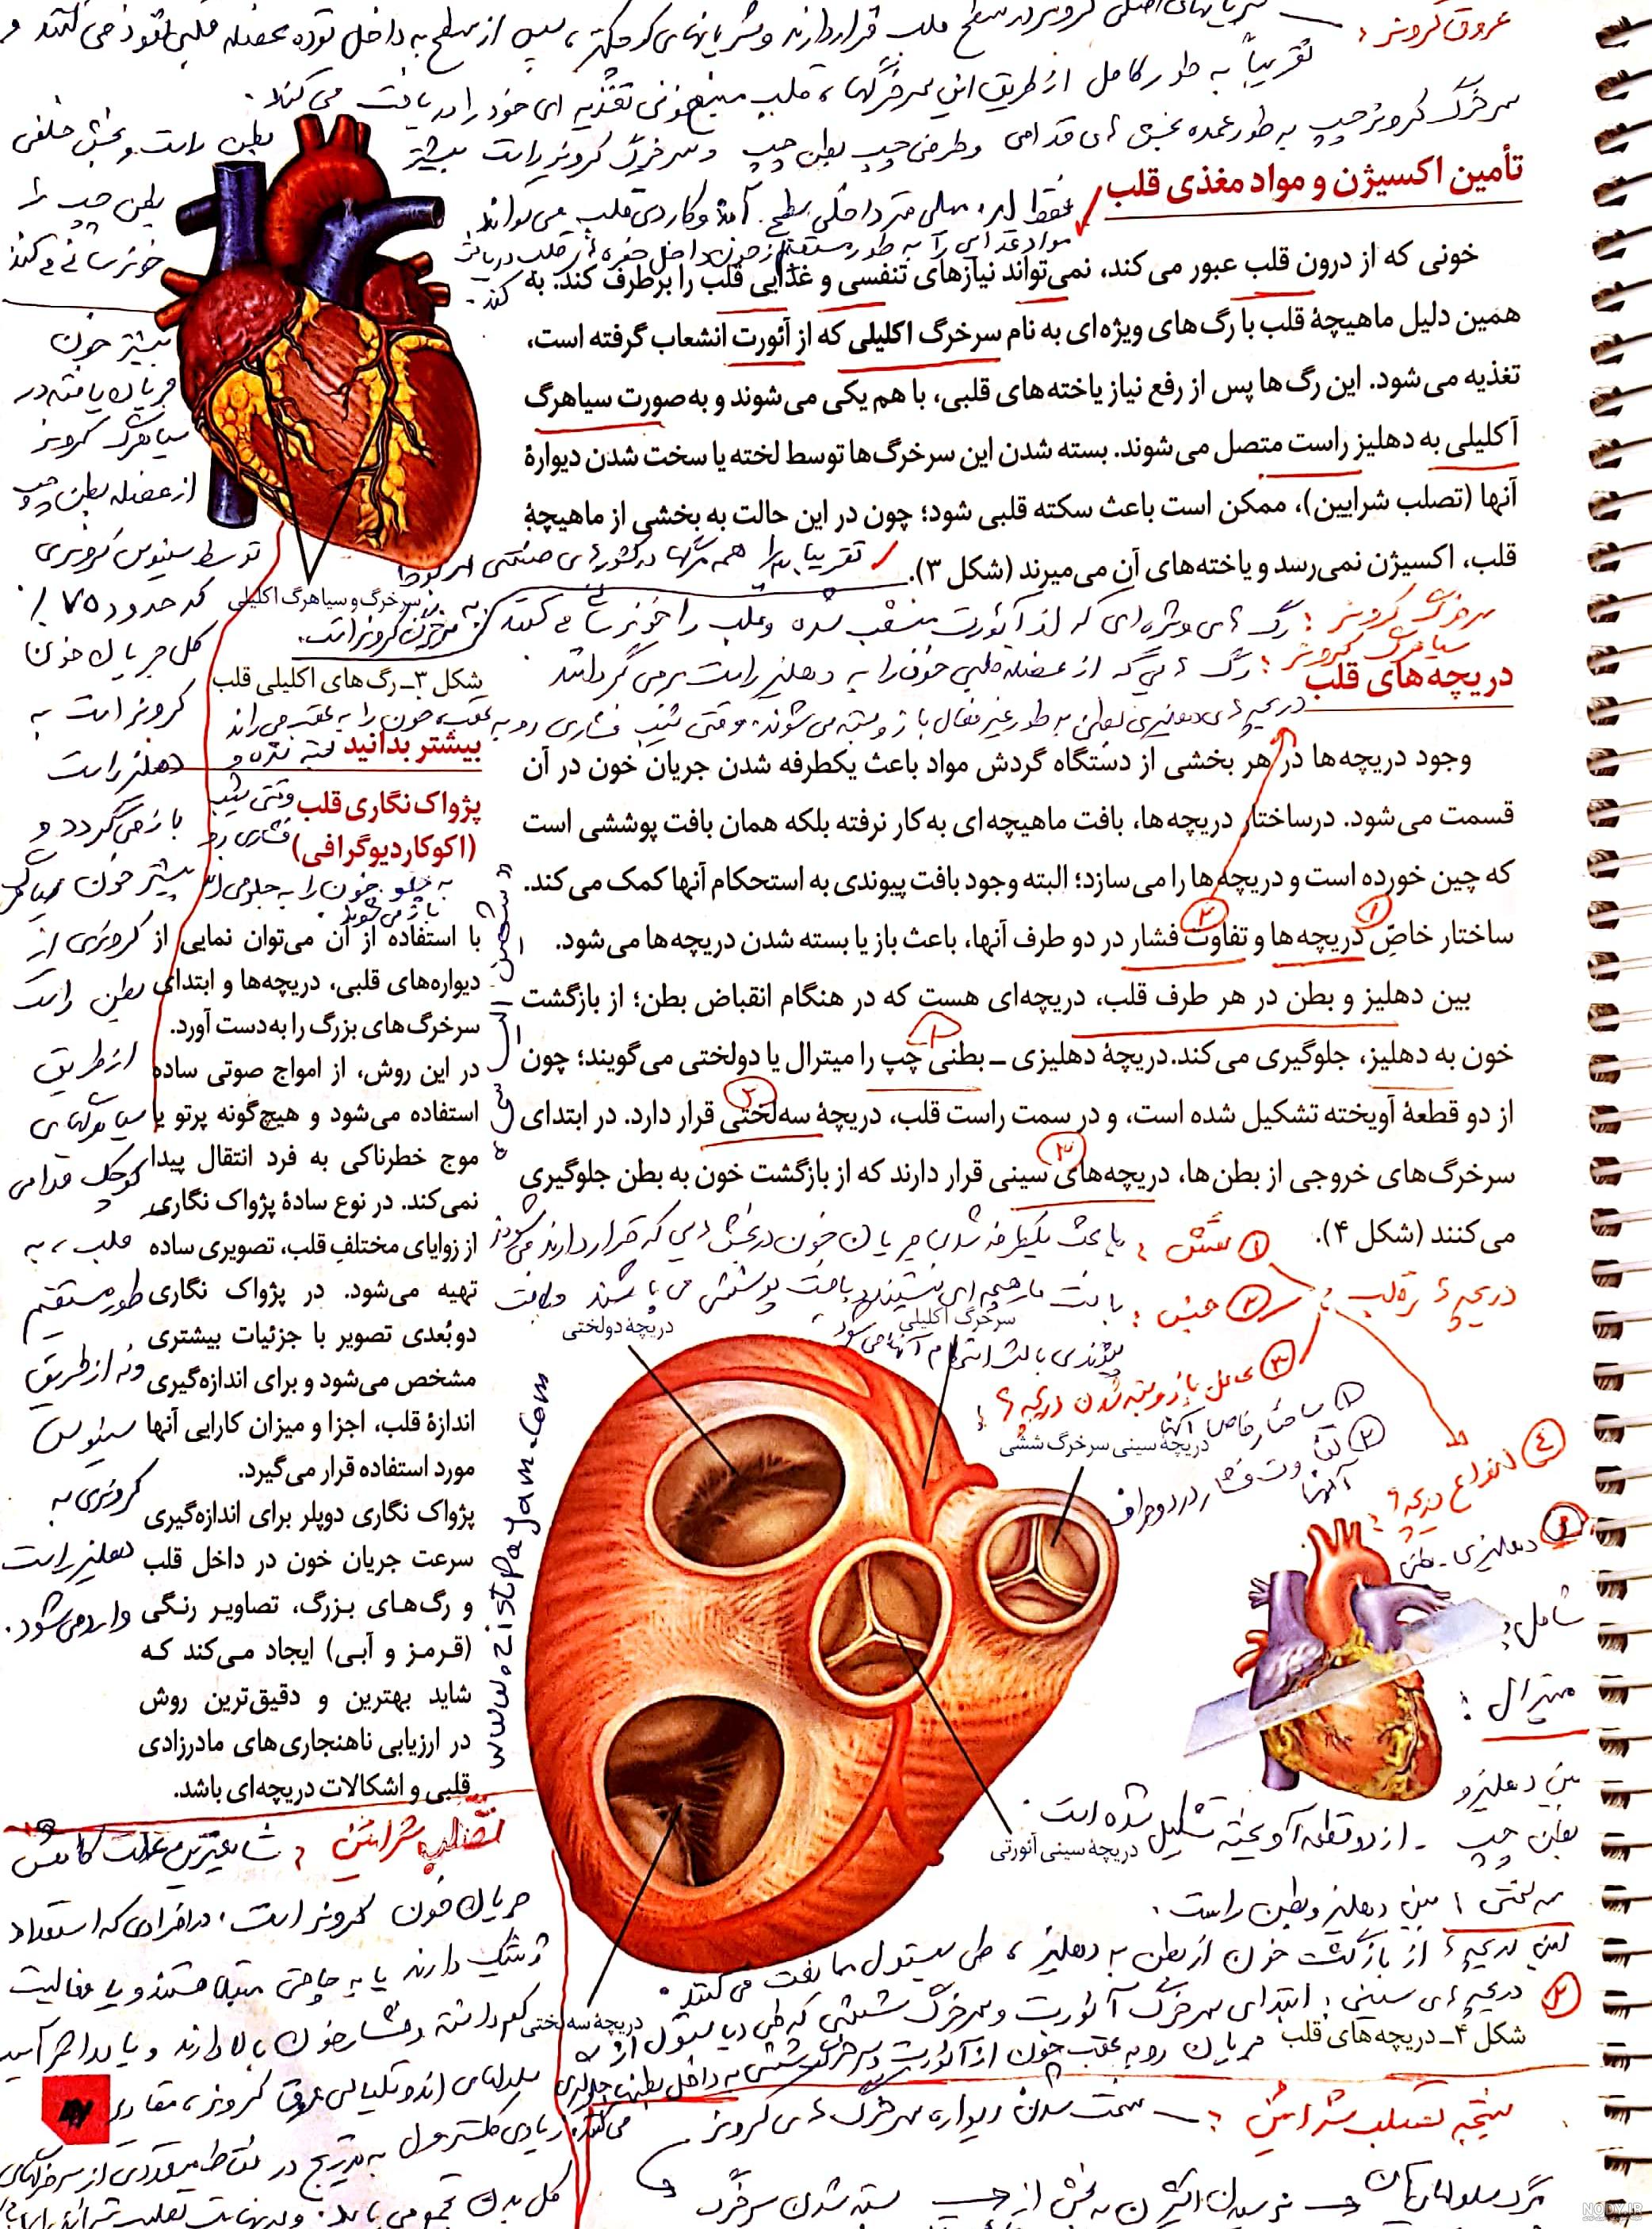 عروق کرونر:
تقریباً به طور کامل از طریق این سرخرگها، قلب منبع خونی تغذیه ای خود را دریافت می کند.
سرخرگ کرونر چپ به طور عمده بخش های قدامی و طرفی چپ بطن چپ و سرخرگ کرونر راست بیشتر
بطن راست و بخش خلفی
بطن چپ را
خونرسانی می کند
تأمین اکسیژن و مواد مغذی قلب
خونی که از درون قلب عبور می کند، نمی‌تواند نیازهای تنفسی و غذایی قلب را برطرف کند. به
همین دلیل ماهیچهٔ قلب با رگ های ویژه ای به نام سرخرگ اکلیلی که از آئورت انشعاب گرفته است،
تغذیه می شود. این رگ ها پس از رفع نیاز یاخته های قلبی، با هم یکی می شوند و به صورت سیاهرگ
اکلیلی به دهلیز راست متصل می شوند. بسته شدن این سرخرگ ها توسط لخته یا سخت شدن دیوارهٔ
آنها (تصلب شرایین)، ممکن است باعث سکته قلبی شود؛ چون در این حالت به بخشی از ماهیچهٔ
قلب، اکسیژن نمی رسد و یاخته های آن می میرند (شکل ۳).
سرخرگ و سیاهرگ اکلیلی
شکل ۳ـ رگ های اکلیلی قلب
بیشتر خون
جریان یافته در
سیاهرگ کرونر
از عضله بطن چپ
توسط سینوس کرونری
که حدود ۷۵٪
کل جریان خون
کرونر است به
دهلیز راست
باز می گردد و
بیشتر خون
کرونری از
بطن راست
از طریق
سیاهرگهای
کوچک قدامی
قلب، به
طور مستقیم
و نه از طریق
سینوس
کرونری به
دهلیز راست
وارد می شود.
سرخرگ کرونر: رگ های ویژه ای که از آئورت منشعب شده و قلب را خونرسانی می کنند
سیاهرگ کرونر: رگ هایی که از عضله قلبی خون را به دهلیز راست برمی گردانند
دریچه های قلب
دریچه های دهلیزی بطنی به طور غیر فعال باز و بسته می شوند. وقتی شیب فشاری رو به عقب، خون را به عقب می راند
وجود دریچه ها در هر بخشی از دستگاه گردش مواد باعث یکطرفه شدن جریان خون در آن
قسمت می شود. درساختار دریچه ها، بافت ماهیچه ای به کار نرفته بلکه همان بافت پوششی است
که چین خورده است و دریچه ها را می سازد؛ البته وجود بافت پیوندی به استحکام آنها کمک می کند.
ساختار خاصِّ دریچه ها و تفاوت فشار در دو طرف آنها، باعث باز یا بسته شدن دریچه ها می شود.
بین دهلیز و بطن در هر طرف قلب، دریچه ای هست که در هنگام انقباض بطن؛ از بازگشت
خون به دهلیز، جلوگیری می کند. دریچهٔ دهلیزی ـ بطنی چپ را میترال یا دولختی می گویند؛ چون
از دو قطعهٔ آویخته تشکیل شده است، و در سمت راست قلب، دریچهٔ سه لختی قرار دارد. در ابتدای
سرخرگ های خروجی از بطن ها، دریچه های سینی قرار دارند که از بازگشت خون به بطن جلوگیری
می کنند (شکل ۴).
بیشتر بدانید
پژواک نگاری قلب
(اکوکاردیوگرافی)
با استفاده از آن می توان نمایی از
دیواره های قلبی، دریچه ها و ابتدای
سرخرگ های بزرگ را به دست آورد.
در این روش، از امواج صوتی ساده
استفاده می شود و هیچ گونه پرتو یا
موج خطرناکی به فرد انتقال پیدا
نمی کند. در نوع سادهٔ پژواک نگاری
از زوایای مختلفِ قلب، تصویری ساده
تهیه می شود. در پژواک نگاری
دوبُعدی تصویر با جزئیات بیشتری
مشخص می شود و برای اندازه گیری
اندازهٔ قلب، اجزا و میزان کارایی آنها
مورد استفاده قرار می گیرد.
پژواک نگاری دوپلر برای اندازه گیری
سرعت جریان خون در داخل قلب
و رگ های بزرگ، تصاویر رنگی
(قرمز و آبی) ایجاد می کند که
شاید بهترین و دقیق ترین روش
در ارزیابی ناهنجاری های مادرزادی
قلبی و اشکالات دریچه ای باشد.
www.zistpayam.com
دریچه های قلب:
۱ نقش: باعث یکطرفه شدن جریان خون در بخش هایی که قرار دارند می شوند
۲ جنس:
۳ عامل باز و بسته شدن دریچه ها:
۱ ساختار خاص آنها
۲ تفاوت فشار در دو طرف آنها
۴ انواع دریچه ها:
۱ دهلیزی - بطنی
شامل:
میترال:
بین دهلیز و
بطن چپ - از دو قطعه آویخته تشکیل شده است.
سه لختی: بین دهلیز و بطن راست.
این دریچه ها از بازگشت خون از بطن به دهلیز، طی سیستول ممانعت می کنند.
۲ دریچه های سینی: ابتدای سرخرگ آئورت و سرخرگ ششی که طی دیاستول از
دریچهٔ دولختی
سرخرگ اکلیلی
دریچهٔ سینی سرخرگ ششی
دریچهٔ سینی آئورتی
دریچهٔ سه لختی
شکل ۴ـ دریچه های قلب
تصلب شرایین: شایعترین علت کاهش
جریان خون کرونر است. در افرادی که استعداد
ژنتیک دارند یا به چاقی مبتلا هستند و یا فعالیت
نتیجه تصلب شرایین: سخت شدن دیواره سرخرگ های کرونر
بسته شدن سرخرگ
NODY.IR